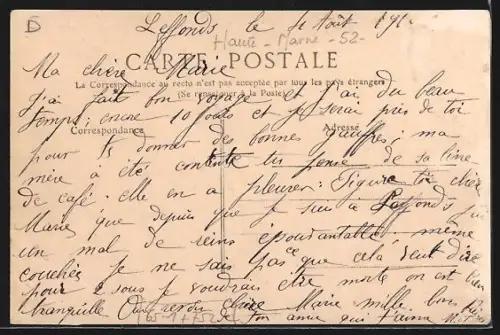 D
Leffonds le 4 Août 191
Haute-Marne -52-
CARTE POSTALE
Ma chère Marie
La Correspondance au recto n'est pas acceptée par tous les pays étrangers
(Se renseigner à la Poste)
J'ai fait bon voyage et j'ai du beau
temps; encore 10 jours et je serai près de toi
Correspondance
Adresse
pour donner des bonnes ; ma
mère a été contente de sa livre
de café. elle en a pleurer: Figure toi chère
Marie que depuis que je suis à Leffonds j'ai
un mal de reins épouvantable. même
couchée je ne sais pas ce que cela veut dire
pour 2 sous je voudrais être morte on est bien
tranquille Au revoir chère Marie mille bons baisers
de ton amie qui t'aime